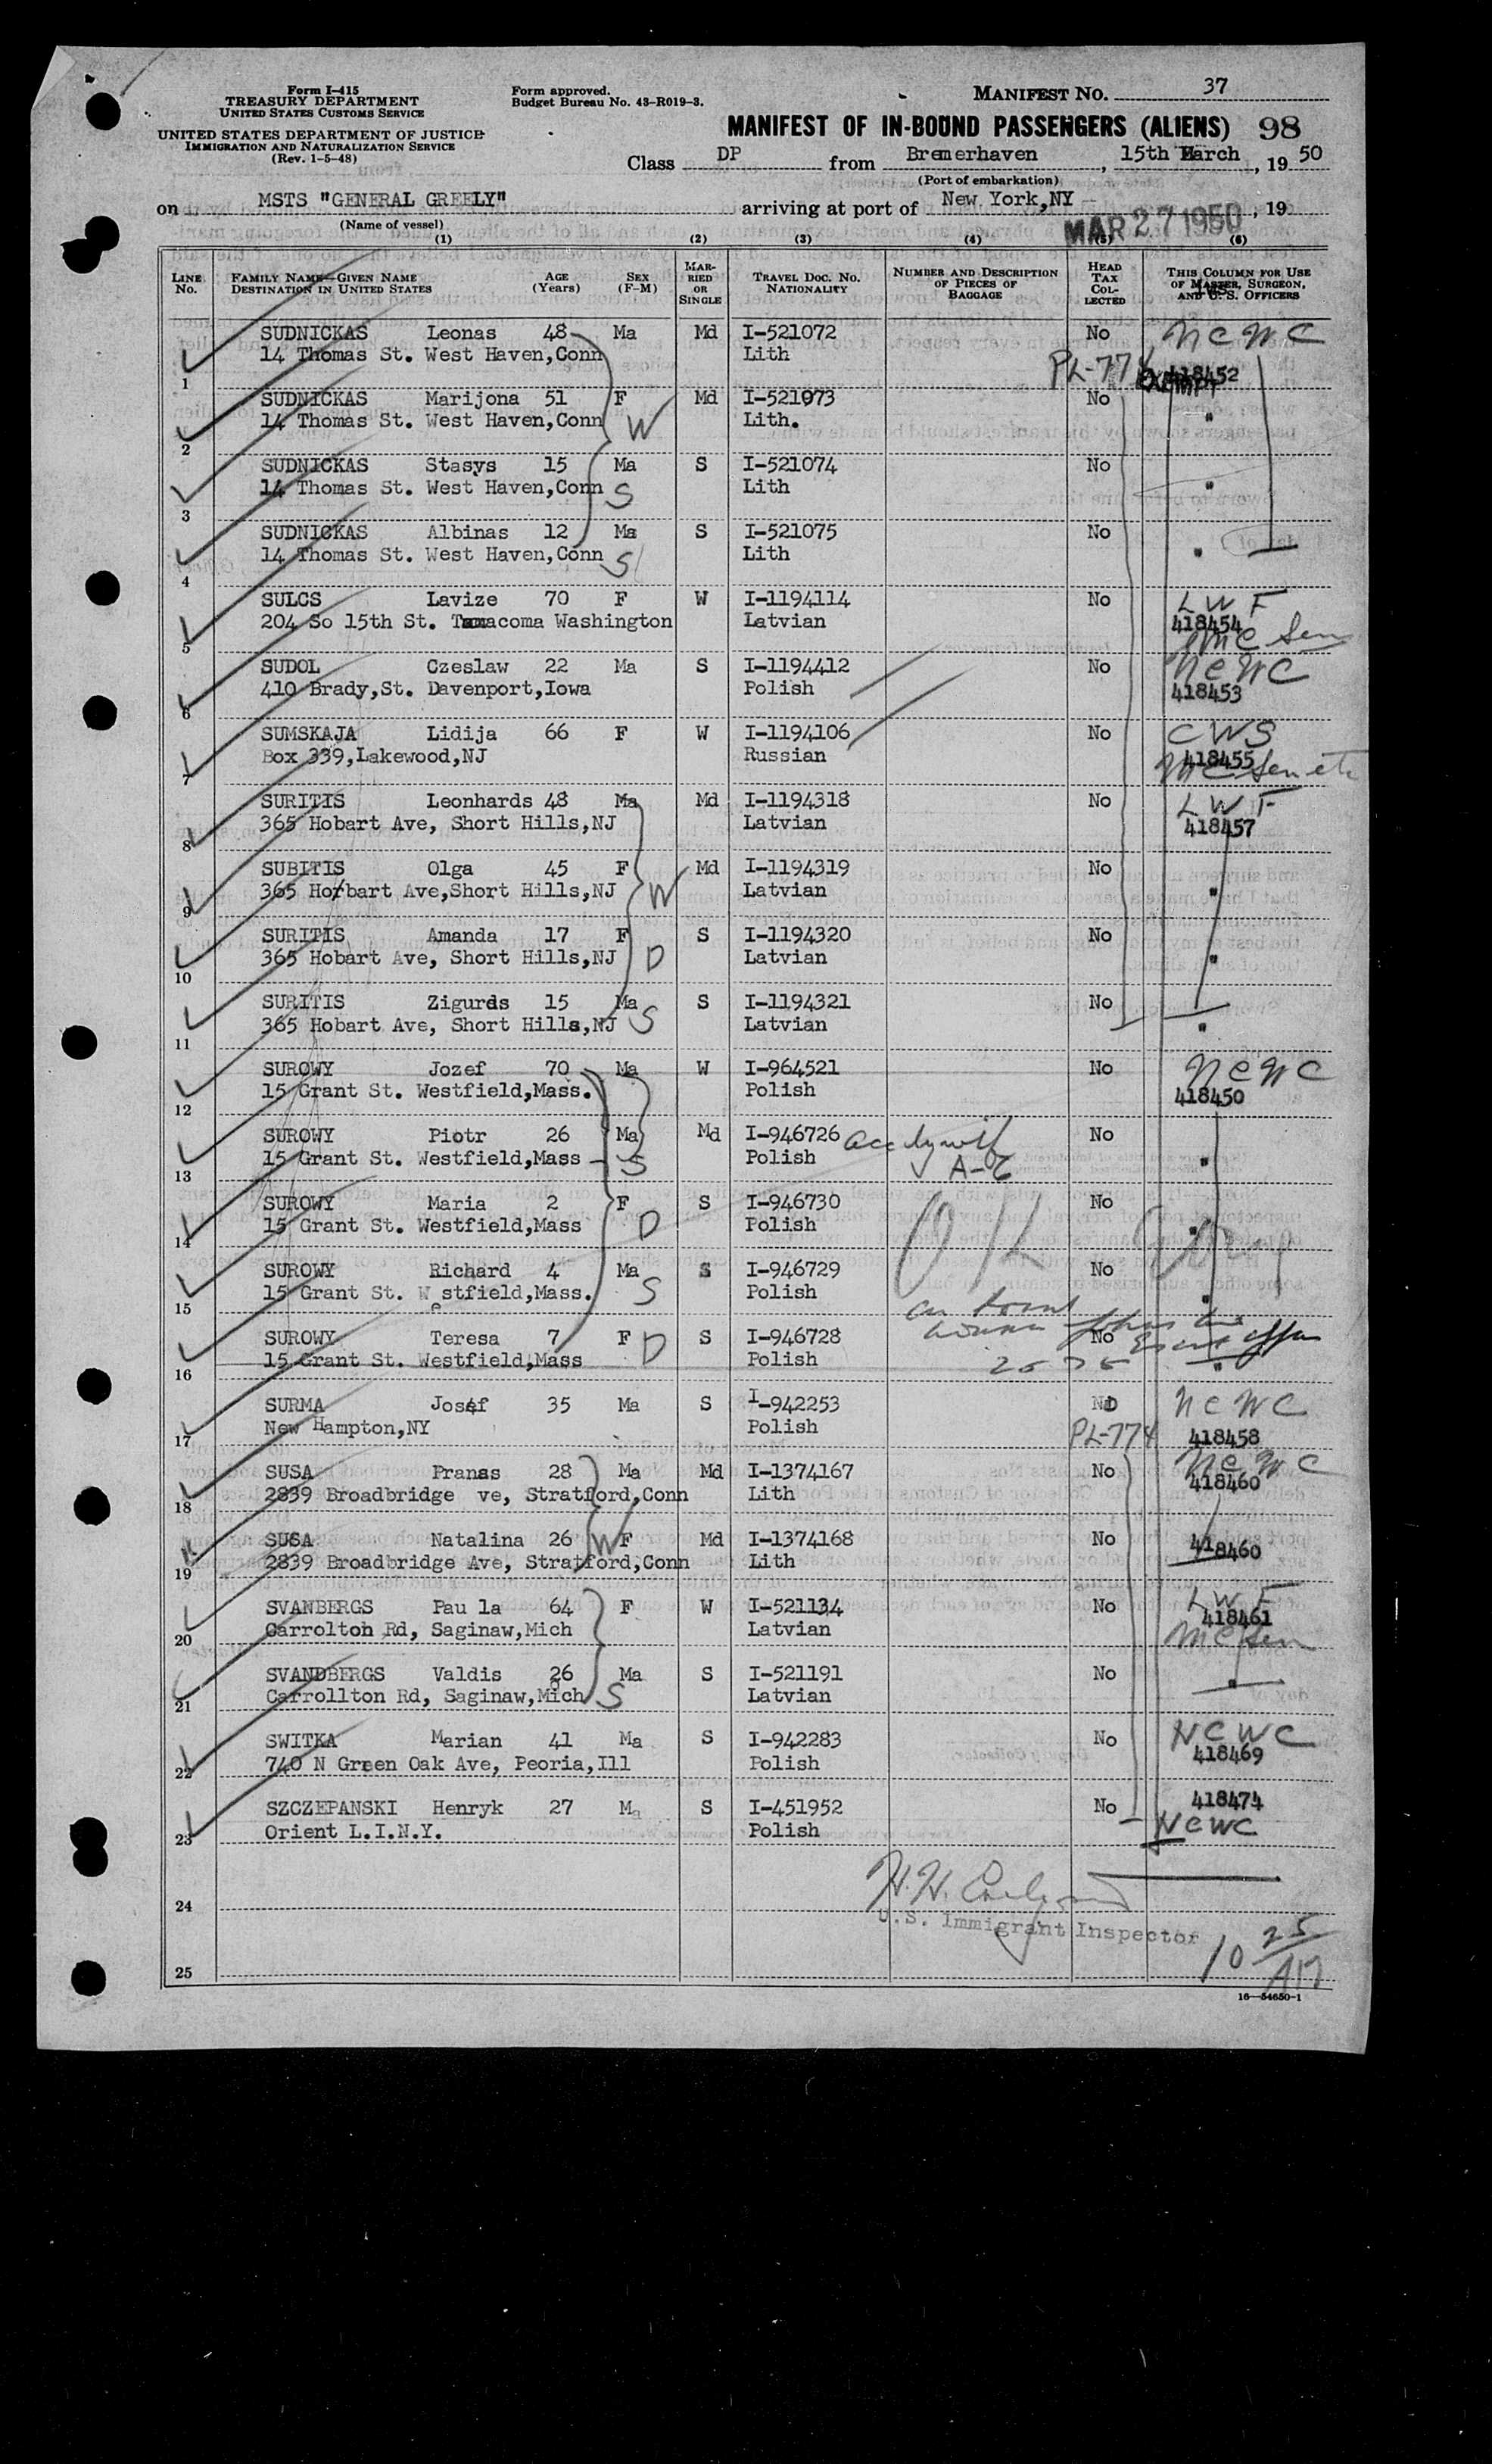 Form I-415
TREASURY DEPARTMENT
UNITED STATES CUSTOMS SERVICE
UNITED STATES DEPARTMENT OF JUSTICE
IMMIGRATION AND NATURALIZATION SERVICE
(Rev. 1-5-48)
Form approved.
Budget Bureau No. 43-R019-3.
MANIFEST NO. 37
MANIFEST OF IN-BOUND PASSENGERS (ALIENS) 98
Class DP from Bremerhaven, 15th March, 19 50
(Port of embarkation)
on MSTS "GENERAL GREELY" arriving at port of New York,NY, 19
(Name of vessel)
MAR 27 1950
(1) (2) (3) (4) (5) (6)
LINE NO. FAMILY NAME—GIVEN NAME DESTINATION IN UNITED STATES AGE (Years) SEX (F-M) MARRIED OR SINGLE TRAVEL DOC. NO. NATIONALITY NUMBER AND DESCRIPTION OF PIECES OF BAGGAGE HEAD TAX COLLECTED THIS COLUMN FOR USE OF MASTER, SURGEON, AND U.S. OFFICERS
SUDNICKAS Leonas 48 Ma Md I-521072 No NCWC
14 Thomas St. West Haven,Conn Lith
1 PL-774 418452
SUDNICKAS Marijona 51 F Md I-521073 No "
14 Thomas St. West Haven,Conn W Lith.
2
SUDNICKAS Stasys 15 Ma S I-521074 No
14 Thomas St. West Haven,Conn S Lith "
3
SUDNICKAS Albinas 12 Ma S I-521075 No
14 Thomas St. West Haven,Conn S Lith "
4
SULCS Lavize 70 F W I-1194114 No LWF
204 So 15th St. Tamacoma Washington Latvian 418454
5
SUDOL Czeslaw 22 Ma S I-1194412 No NCWC
410 Brady,St. Davenport,Iowa Polish 418453
6
SUMSKAJA Lidija 66 F W I-1194106 No CWS
Box 339,Lakewood,NJ Russian 418455
7
SURITIS Leonhards 48 Ma Md I-1194318 No LWF
365 Hobart Ave, Short Hills,NJ Latvian 418457
8
SUBITIS Olga 45 F Md I-1194319 No
365 Horbart Ave,Short Hills,NJ W Latvian "
9
SURITIS Amanda 17 F S I-1194320 No
365 Hobart Ave, Short Hills,NJ D Latvian "
10
SURITIS Zigurds 15 Ma S I-1194321 No
365 Hobart Ave, Short Hills,NJ S Latvian "
11
SUROWY Jozef 70 Ma W I-964521 No NCWC
15 Grant St. Westfield,Mass. Polish 418450
12
SUROWY Piotr 26 Ma Md I-946726 No
15 Grant St. Westfield,Mass S Polish "
13
SUROWY Maria 2 F S I-946730 No
15 Grant St. Westfield,Mass D Polish "
14
SUROWY Richard 4 Ma S I-946729 No
15 Grant St. Westfield,Mass. S Polish "
15
SUROWY Teresa 7 F D S I-946728 No
15 Grant St. Westfield,Mass Polish "
16
SURMA Josef 35 Ma S I-942253 No NCWC
New Hampton,NY Polish PL-774 418458
17
SUSA Pranas 28 Ma Md I-1374167 No NCWC
2839 Broadbridge ve, Stratford,Conn Lith 418460
18
SUSA Natalina 26 W F Md I-1374168 No
2839 Broadbridge Ave, Stratford,Conn Lith 418460
19
SVANBERGS Pau la 64 F W I-521134 No LWF
Carrolton Rd, Saginaw,Mich Latvian 418461
20
SVANDBERGS Valdis 26 Ma S I-521191 No "
Carrollton Rd, Saginaw,Mich S Latvian
21
SWITKA Marian 41 Ma S I-942283 No NCWC
740 N Green Oak Ave, Peoria,Ill Polish 418469
22
SZCZEPANSKI Henryk 27 Ma S I-451952 No 418474
Orient L.I.N.Y. Polish NCWC
23
24
U.S. Immigrant Inspector
25
16—54650-1